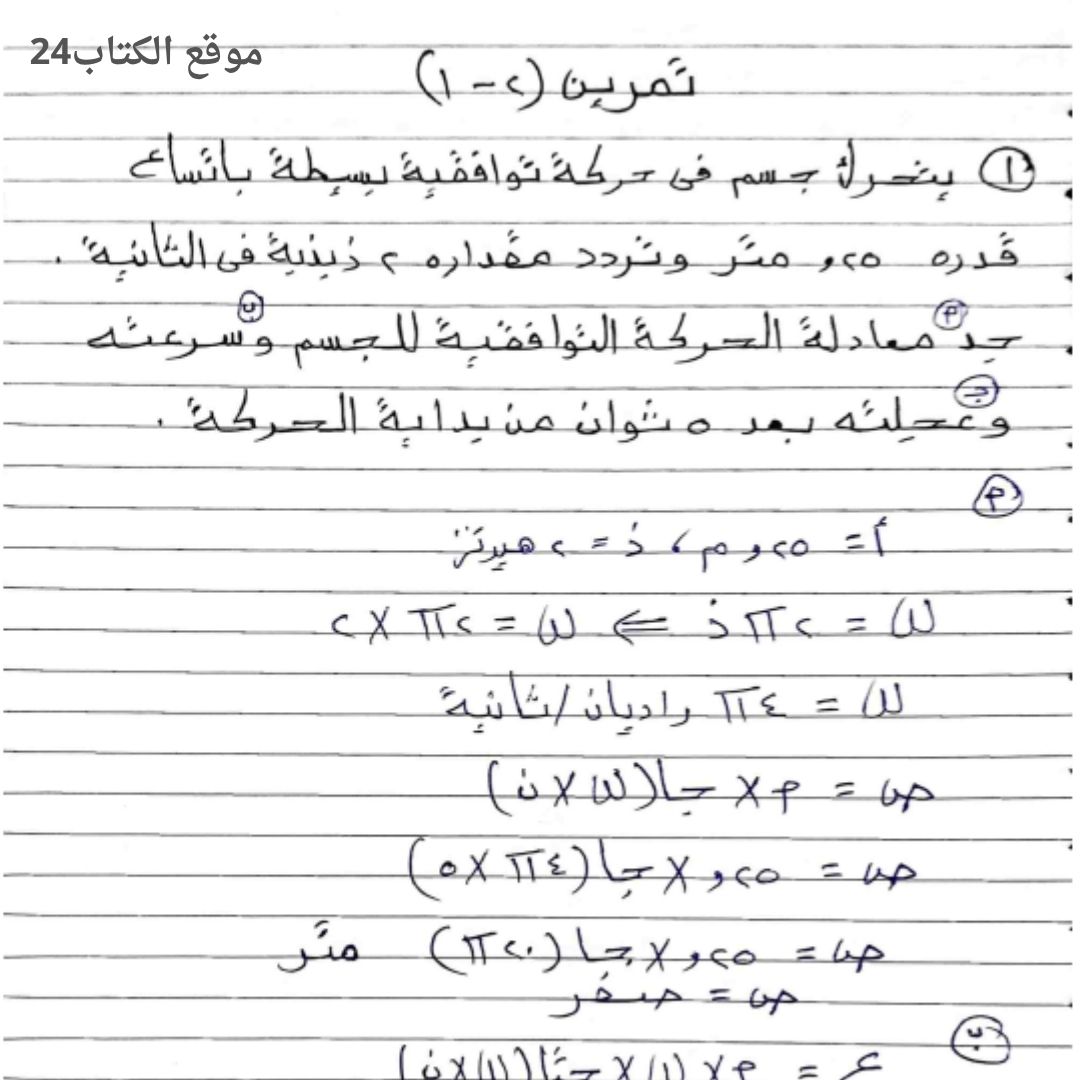 موقع الكتاب24
تمرين (٢-١)
① يتحرك جسم فى حركة توافقية بسيطة باتساع
قدره ٢٥, متر وتردد مقداره ٢ ذبذبة فى الثانية.
جد أ معادلة الحركة التوافقية للجسم ب وسرعته
ج وعجلته بعد ٥ ثوان من بداية الحركة.
أ
أ = ٢٥, م ، ذ = ٢ هيرتز
ω = ٢π ذ ⇐ ω = ٢π × ٢
ω = ٤π راديان/ثانية
ص = أ × جا(ω × ن)
ص = ٢٥, × جا(٤π × ٥)
ص = ٢٥, × جا(٢٠π) متر
ص = صفر
ب
ع = أ × ω × جتا(ω × ن)